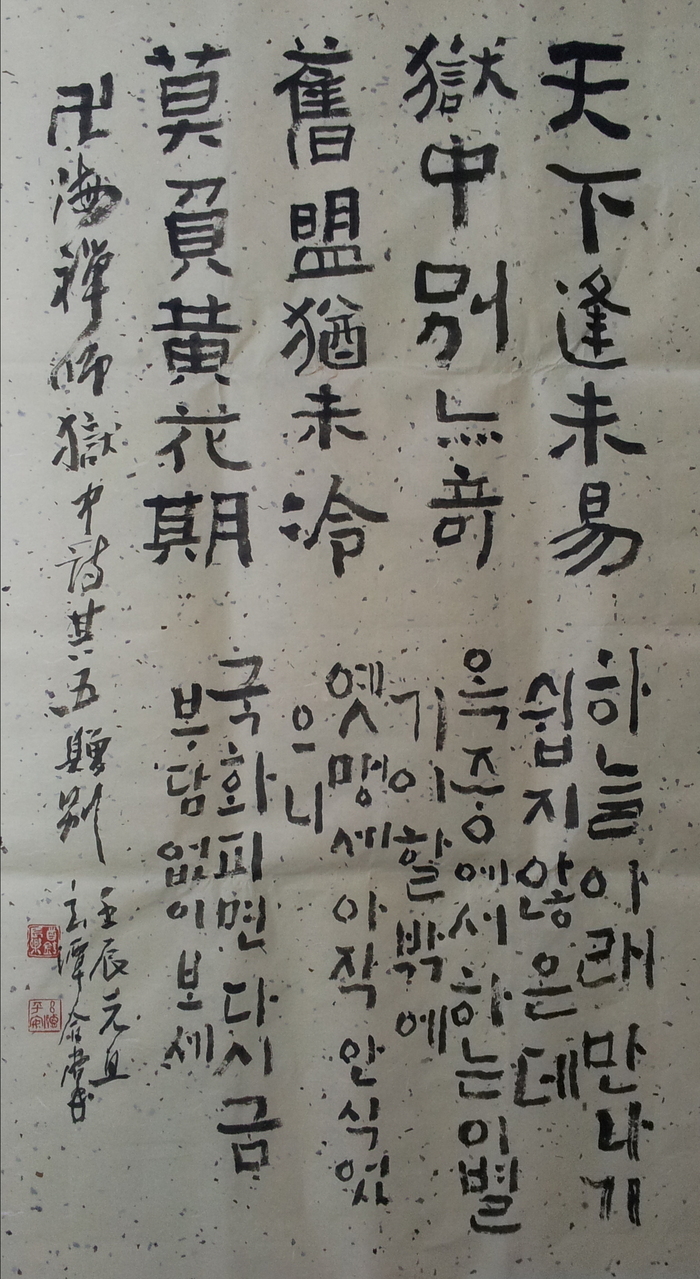 天下逢未易
獄中別亦奇
舊盟猶未冷
莫負黃花期
하늘아래 만나기
쉽지않은데
옥중에서 하는 이별
기이할밖에
옛맹세 아직 안식었
으니
국화피면 다시금
부담없이 보세
卍海禪師獄中詩其五贈別
壬辰元旦
玄潭